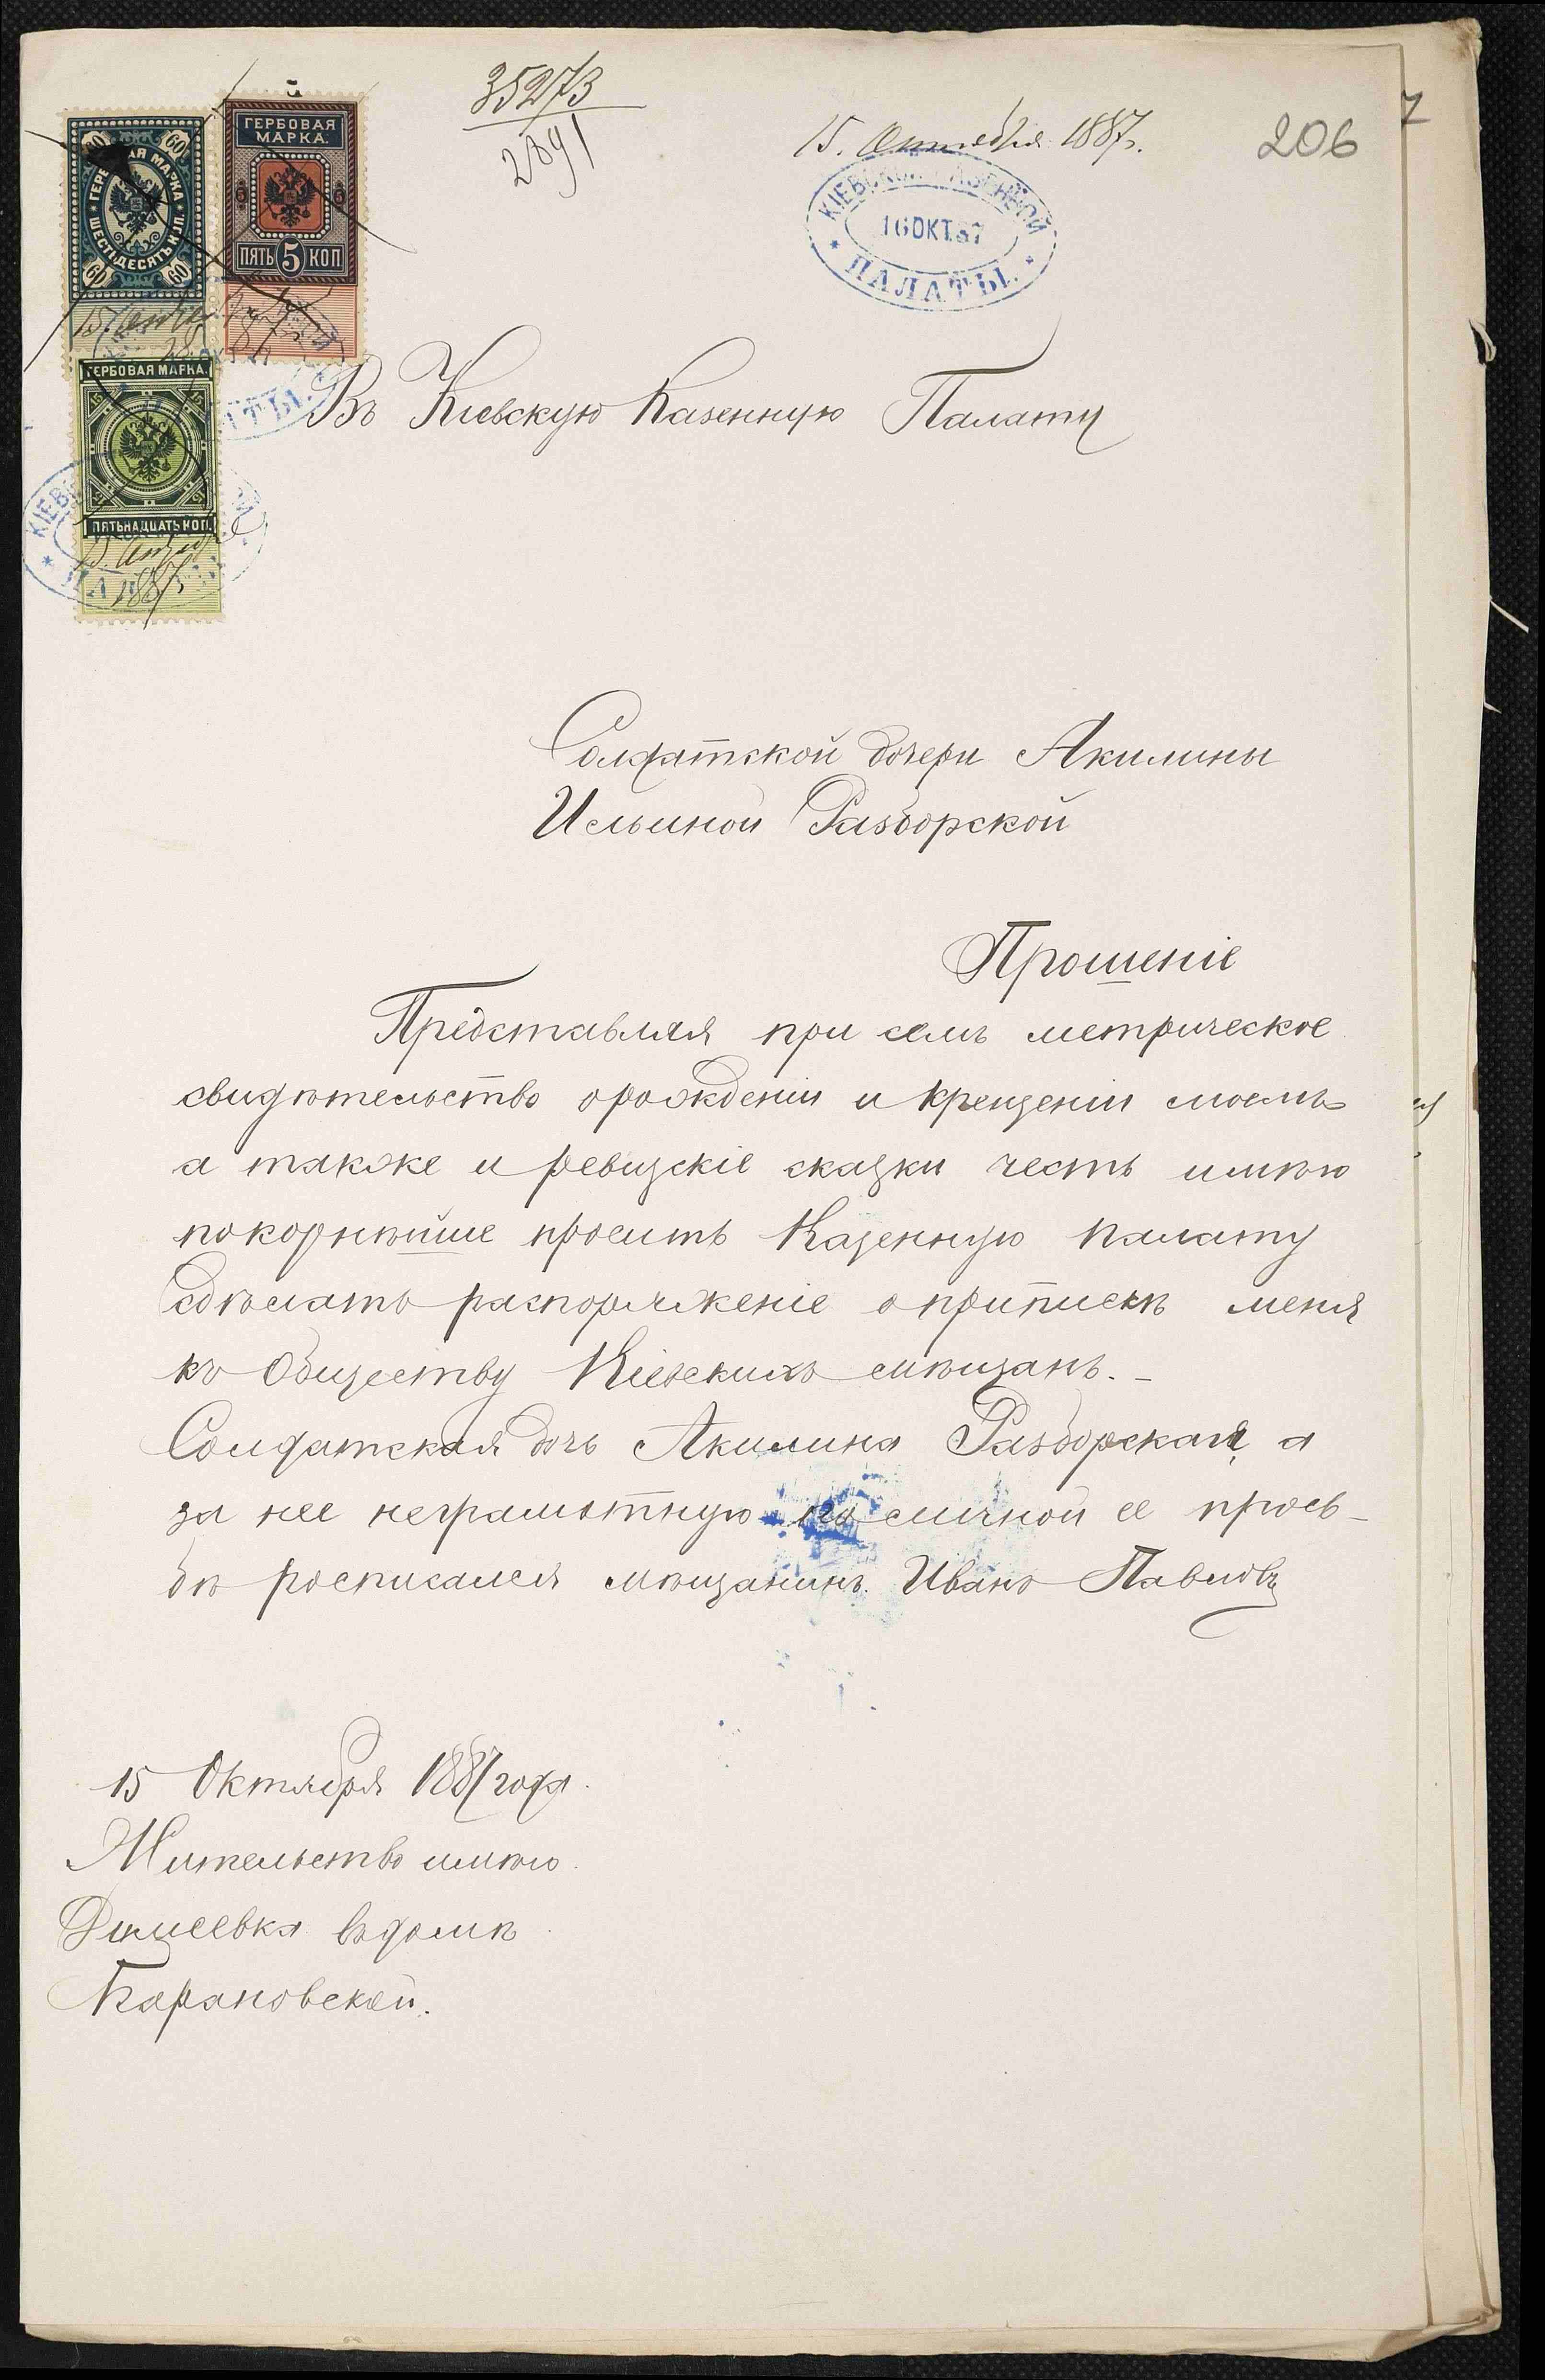 35273
2891
15. Октября 1887г.
206
7
КІЕВСКОЙ КАЗЕННОЙ
16 ОКТ. 87
ПАЛАТЫ.
60 60
ГЕРБОВАЯ МАРКА
ШЕСТЬДЕСЯТЪ КОП.
60 60
ГЕРБОВАЯ
МАРКА.
5 5
ПЯТЬ 5 КОП
15 Октября
ГЕРБОВАЯ МАРКА.
ПЯТЬНАДЦАТЬ КОП.
15. Октября
1887
Въ Кіевскую Казенную Палату
Солдатской дочери Акилины
Ильиной Разборской
Прошеніе
Представляя при семъ метрическое
свидѣтельство о рожденіи и крещеніи моемъ
а также и ревизскіе сказки честь имѣю
покорнѣйше просить Казенную палату
сдѣлать распоряженіе о припискѣ меня
къ Обществу Кіевскихъ мѣщанъ. –
Солдатская дочь Акилина Разборская, а
за нее неграмотную по личной ее прось-
бѣ росписался мѣщанинъ Иванъ Павловъ
15 Октября 1887 года.
Жительство имѣю
въ домѣ
Барановской.